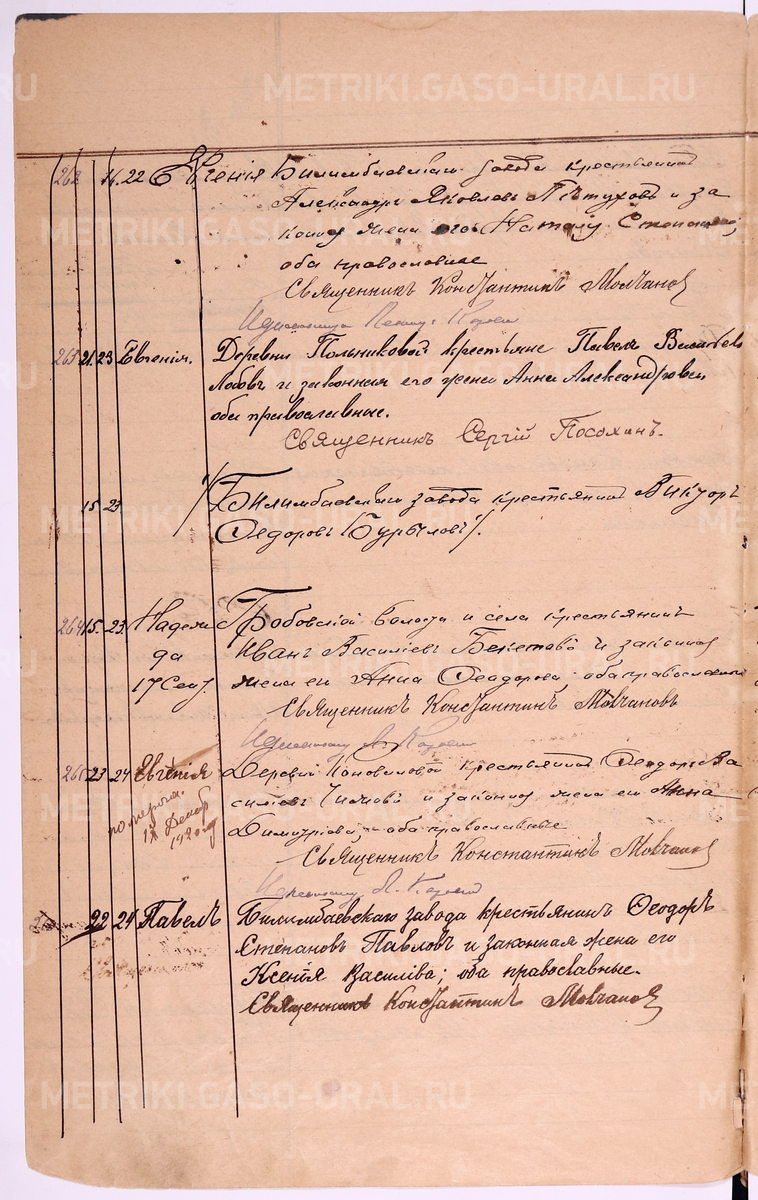 METRIKI.GASO-URAL.RU
262 14. 22 Евгенія Билимбаевскаго завода крестьянинъ
Александръ Яковлевъ Пѣтуховъ и за
конная жена его Наталія Степанова;
оба православные
Священникъ Константинъ Молчановъ
263 21. 23 Евгенія. Деревни Польниковой крестьяне Павелъ
Лобовъ и законная его жена Анна Александровна
оба православные.
Священникъ Сергій Посохинъ.
15 23 Билимбаевскаго завода крестьянинъ Викторъ
Ѳедоровъ Бурыловъ.
264 15. 23. Надеж Гробовской волости и села крестьянинъ
да Иванъ Василіевъ Бекетовъ и законная
17 Сент. жена его Анна Ѳеодорова; оба православные
Священникъ Константинъ Молчановъ
265 23 24 Евгенія Деревни Коноваловой крестьянинъ Ѳеодоръ Ва
померла. силіевъ и законная жена его Анна
Декабр Димитріева, оба православные
1920 году
Священникъ Константинъ Молчановъ
22 24 Павелъ Билимбаевскаго завода крестьянинъ Ѳеодоръ
Степановъ Павловъ и законная жена его
Ксенія Василіева; оба православные.
Священникъ Константинъ Молчановъ